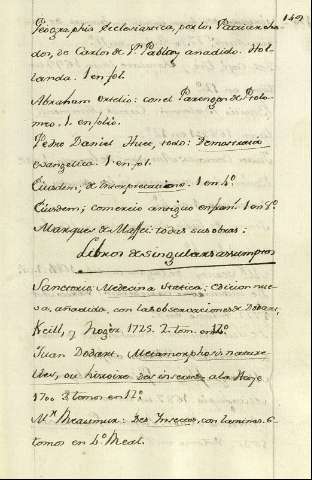 149
Geographia Eclesiastica, por los Patriarcha
dos, de Carlos de Sn Pablo y añadido. Hol
landa. 1 en fol.
Abraham Ortelio: con el Parergon de Ptolo
meo. 1. en folio.
Pedro Daniel Huec,
evangelica. 1. en fol.
Eiusdem; de Interpretacione. 1 en 4º.
Eiusdem; comercio antiguo en fran.s 1 en 8º.
Marques de Maffei: todas sus obras:
Libros de singulares assumptos
Sanctorio; Medecina Statica; edicion nue
va, añadida, con las observaciones de Dodart,
Keill, y Noger. 1725. 2. tom. en 12º.
Juan Dodart. Metamorphosis nature
lles, ou histoire des insectes a la Haye
1700 3. tomos en 12º
Mr Reaumur: Des Insectes, con laminas. 6.
tomos en 4º. Real.